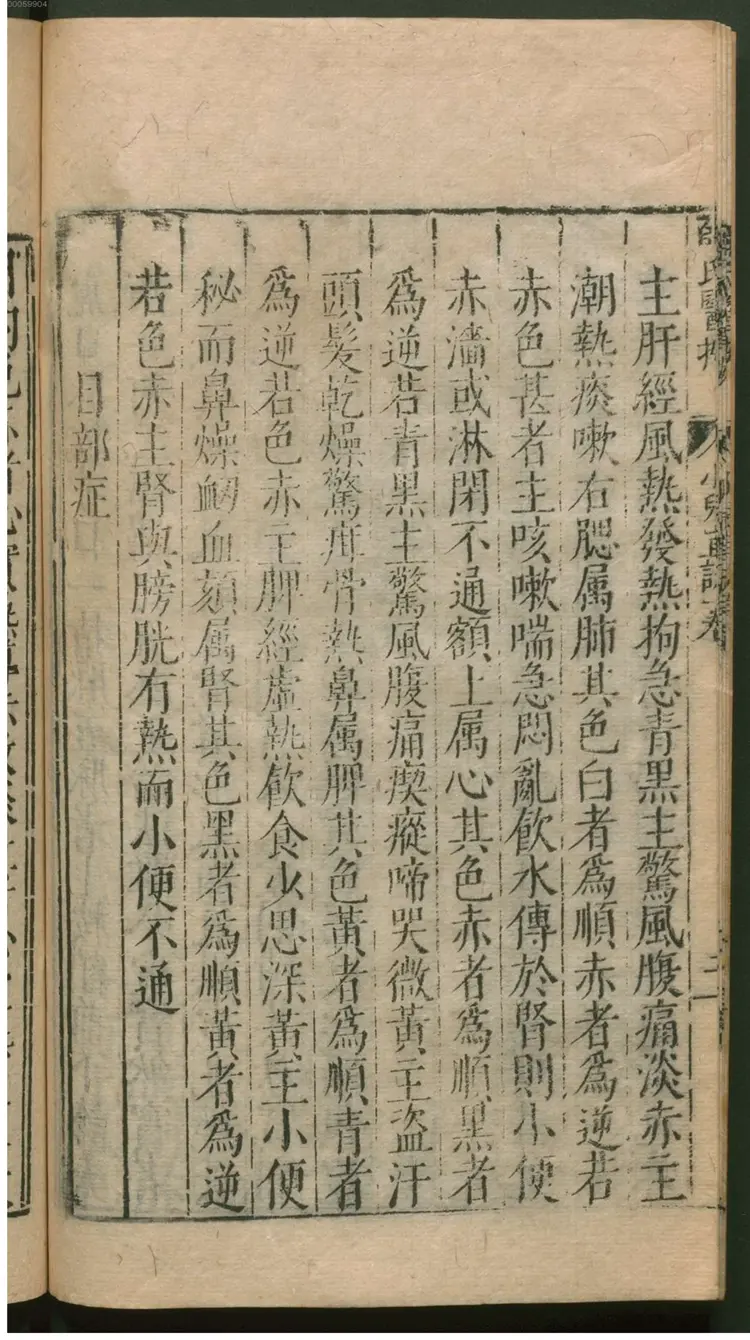 00059904
氏醫按
主肝經風熱發熱拘急青黑主驚風腹痛淡赤主
潮熱痰嗽右腮属肺其色白者爲順赤者爲逆若
赤色甚者主咳嗽喘急悶亂飲水傳於腎則小便
赤濇或淋閉不通額上属心其色赤者爲順黒者
爲逆若青黒主驚風腹痛瘈瘲啼哭微黃主盗汗
頭髪乾燥驚疳骨熱鼻属脾其色黃者爲順青者
爲逆若色赤主脾經虛熱飲食少思深黃主小便
秘而鼻燥衂血頦属腎其色黑者爲順黃者爲逆
若色赤主腎與膀胱有熱而小便不通
目部症